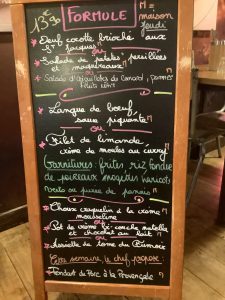 13€90 FORMULE M= maison
Jeudi
Oeuf cocotte brioché aux
St Jacques
ou
Salade de patates persillées
et maquereaux
ou
Salade d'aiguillettes de Canard, pommes
fruits
Langue de boeuf,
sauce piquante
ou
Filet de limande
crème de moules au curry
Garnitures: frites riz fondue
de poireaux mogettes haricots
verts ou purée de panais
Choux craquelin à la crème
mousseline
ou
Pot de crème bi-couche nutella
chocolat au lait
ou
Assiette de tome du
Cette semaine, le chef propose:
Fondant de Porc à la Provençale